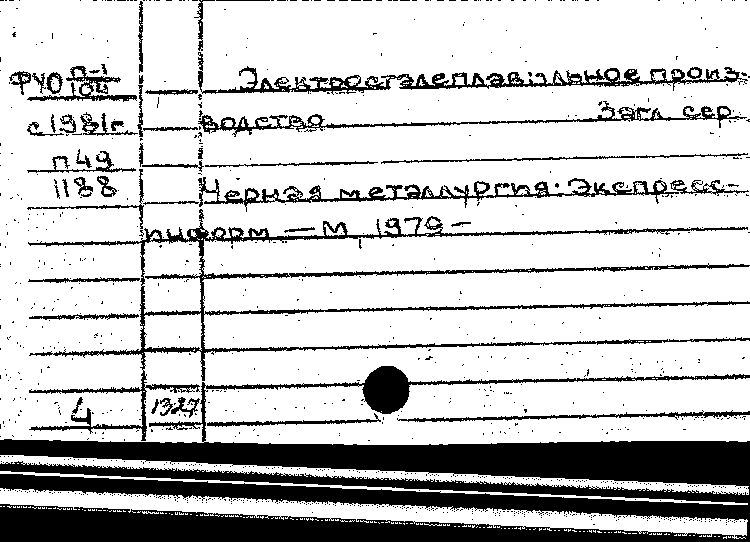 ФУО п-1/104 Электросталеплавильное произ-
с 1981г. водство Загл. сер.
п49
1188 Черная металлургия: Экспресс-
информ — М, 1979 –
4 1327